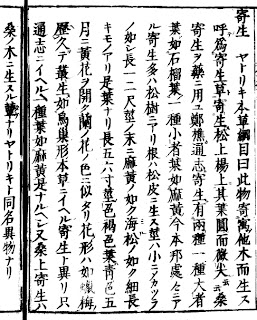 寄生 ヤトリキ本草綱目曰此物寄寓他木而生ス
呼爲寄生草寄生松上楊上其葉圓而微尖云桑
寄生ヲ藥ニ用ユ鄭樵通志寄生有兩種一種大者
葉如石榴葉一種小者葉如麻黄今本邦處々ニア
ル寄生多ハ松樹ニアリ根ハ松皮ニ生ス莖ハ小ニノカツラ
ノ如シ長一二尺莖ノ末ニ麻黄ノ如ク海松ノ如ク細長
キモノアリ是葉ナリ長五六寸莖色褐色葉青色五
月ニ黄花ヲ開ク蘭ノ花ノ色ニ似タリ花形ハ如蠟梅
歴久テ叢生如鳥巣形本草ニイヘル寄生ト異リ只
通志ニイヘル一種葉如麻黄是ナルヘシ又桑上寄生ハ
桑ノ木ニ生スル蕈ナリヤトリキト同名異物ナリ